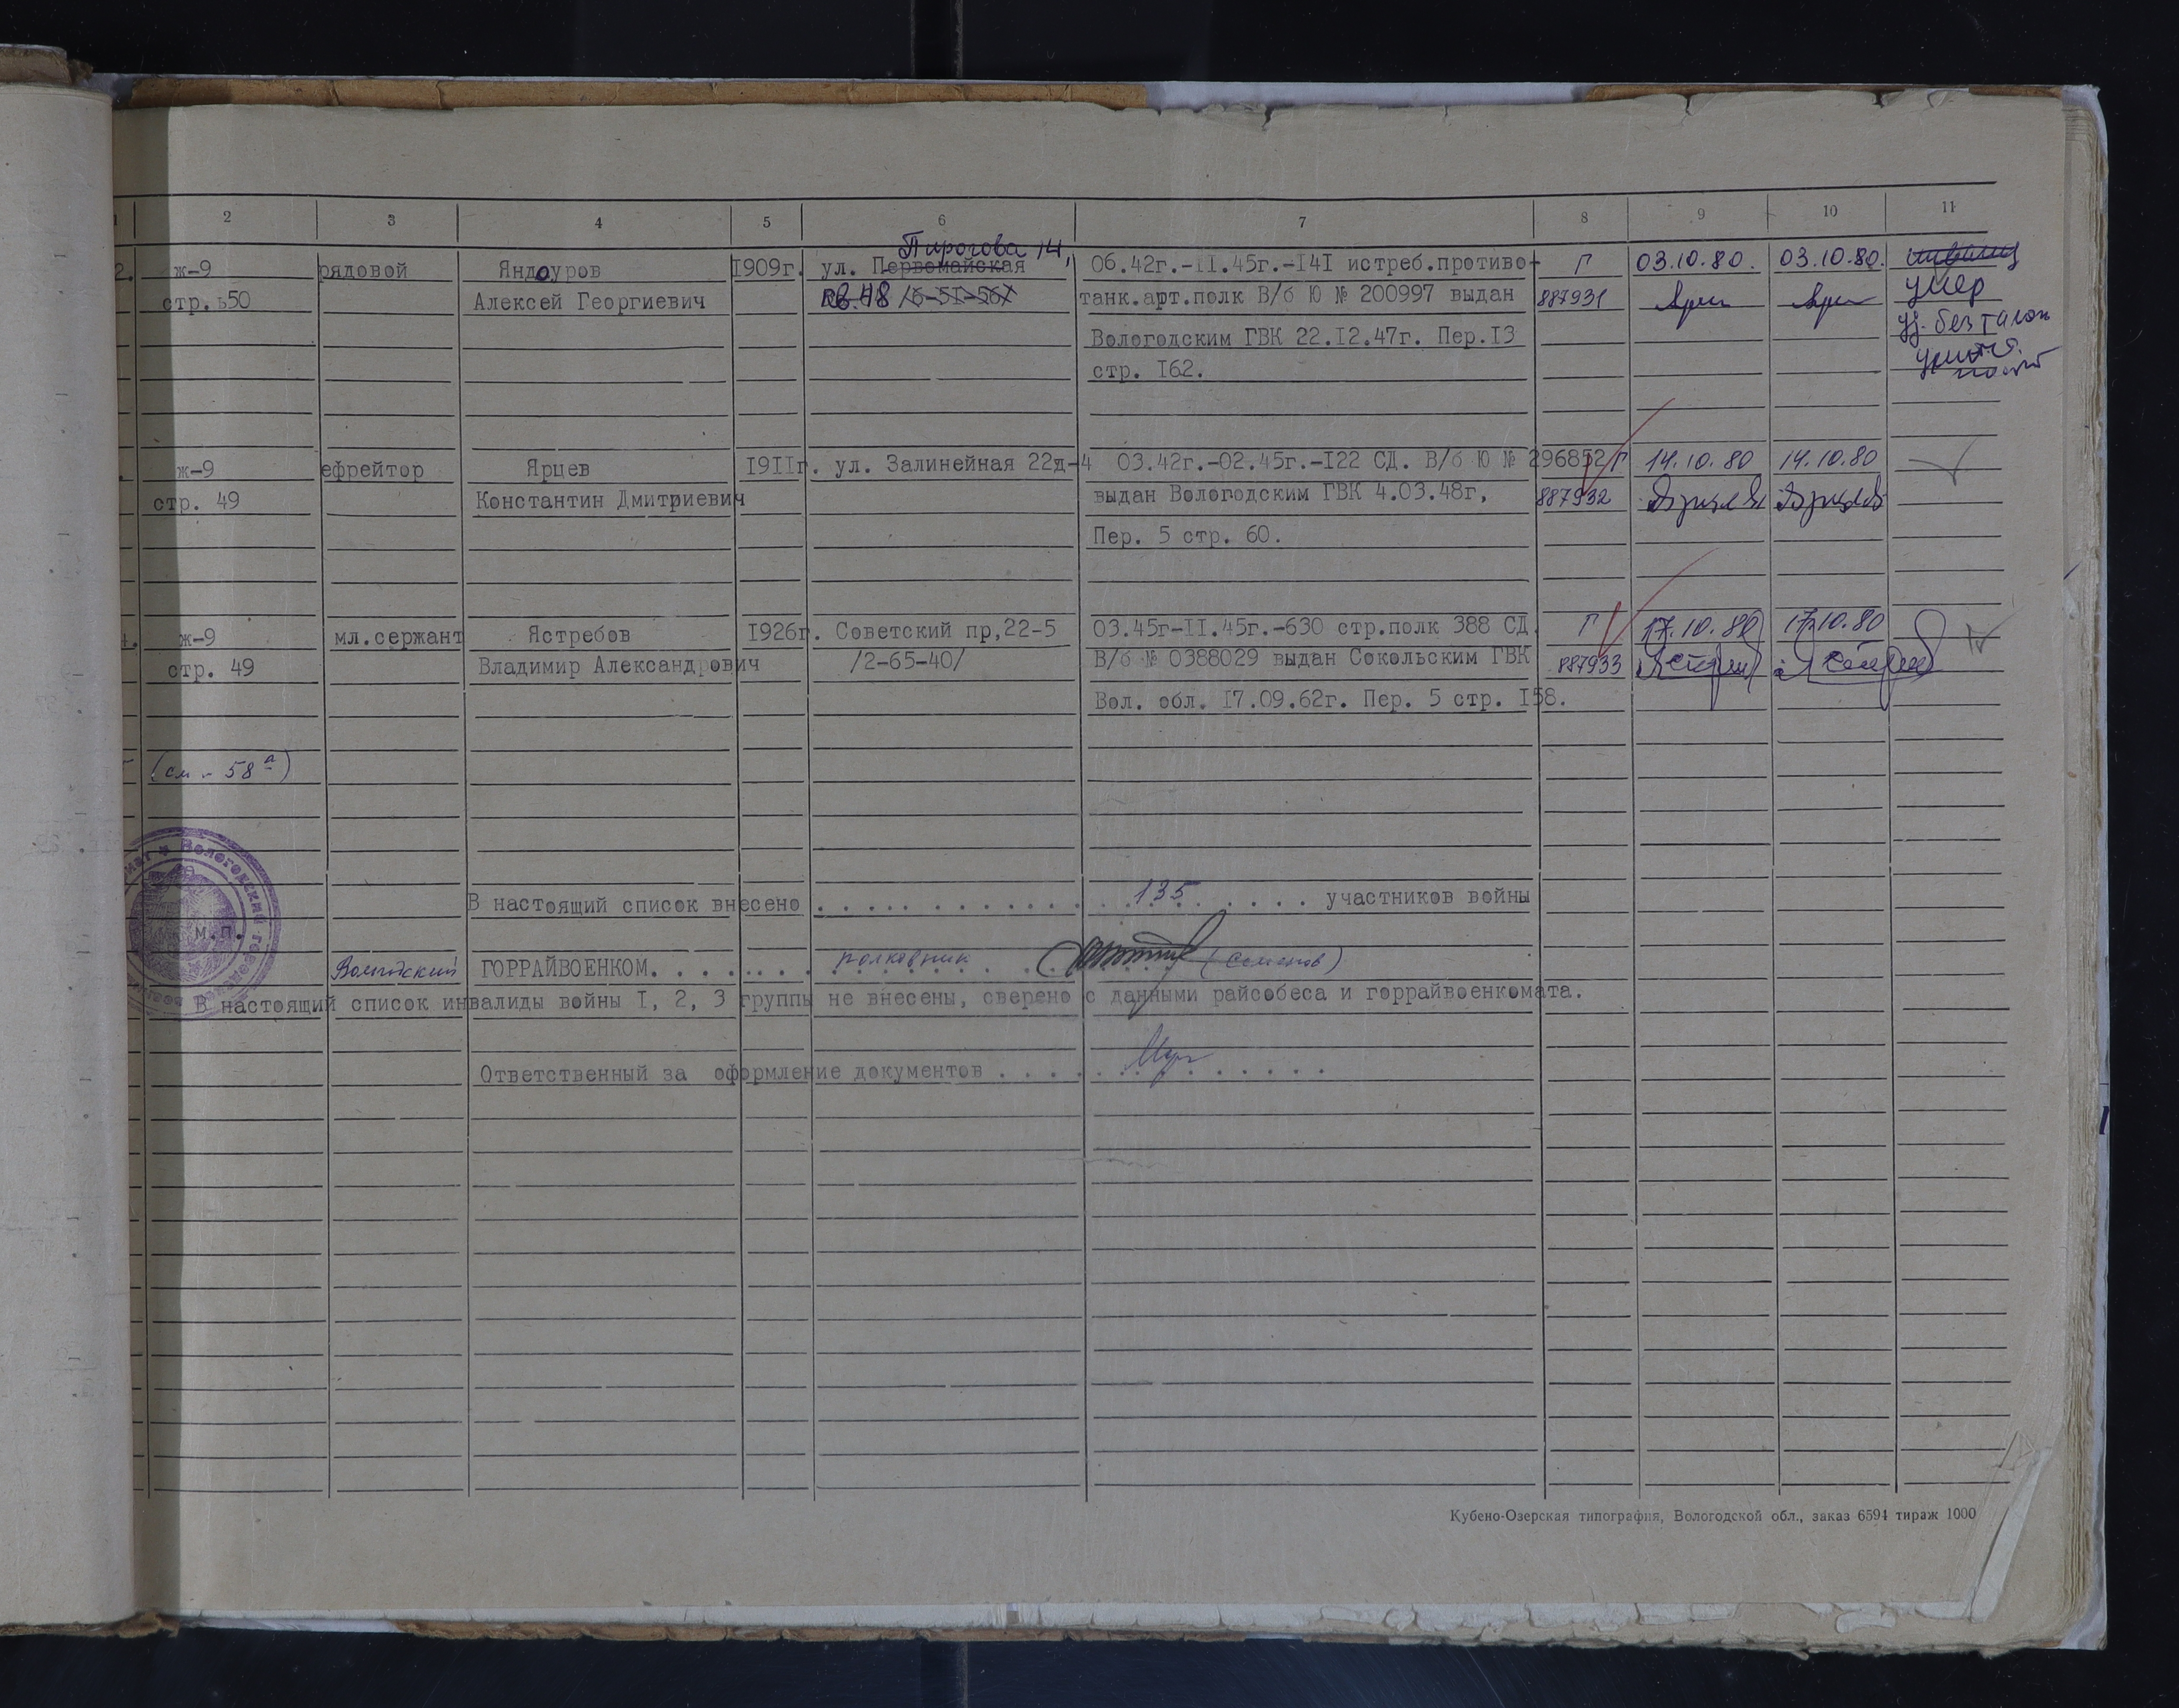 1 2 3 4 5 6 7 8 9 10 11
2. ж-9 рядовой Яндоуров 1909г. ул. Первомайская Пирогова 14, 06.42г.-II.45г.-I4I истреб.противо- Г 03.10.80. 03.10.80.
стр.ь50 Алексей Георгиевич кв.48 /6-5I-56/ танк.арт.полк В/б Ю № 200997 выдан 887931 умер
Вологодским ГВК 22.I2.47г. Пер.I3 уд. без талон
стр. I62.
ж-9 ефрейтор Ярцев I9IIг. ул. Залинейная 22д-4 03.42г.-02.45г.-I22 СД. В/б Ю № 296852 Г 14.10.80 14.10.80
стр. 49 Константин Дмитриевич выдан Вологодским ГВК 4.03.48г, 887932
Пер. 5 стр. 60.
4. ж-9 мл.сержант Ястребов I926г. Советский пр,22-5 03.45г-II.45г.-630 стр.полк 388 СД. Г 17.10.80 17.10.80
стр. 49 Владимир Александрович /2-65-40/ В/б № 0388029 выдан Сокольским ГВК 887933
Вол. обл. I7.09.62г. Пер. 5 стр. I58.
(см - 58а)
В настоящий список внесено . . . . 135 . . . . участников войны
М.П.
Вологодский ГОРРАЙВОЕНКОМ. . . . полковник (Семенов)
В настоящий список инвалиды войны I, 2, 3 группы не внесены, сверено с данными райсобеса и горрайвоенкомата.
Ответственный за оформление документов . . . .
Кубено-Озерская типография, Вологодской обл., заказ 6594 тираж 1000